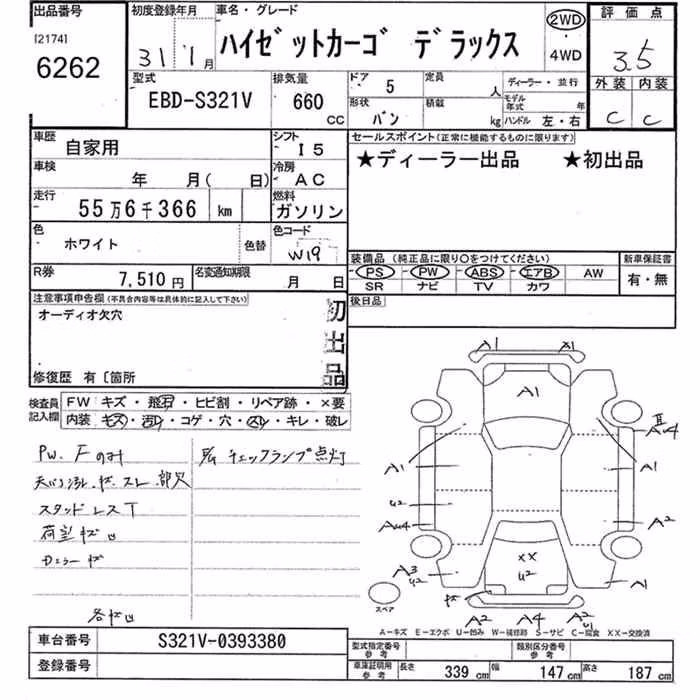 出品番号
[2174]
6262
初度登録年月
31 1月
車名・グレード
ハイゼットカーゴ デラックス
2WD
4WD
評価点
3.5
外装 内装
C C
型式
EBD-S321V
排気量
660
CC
ドア 5
定員 人
形状 バン
積載 kg
ディーラー・並行
モデル年式 年
ハンドル 左・右
車歴 自家用
シフト I5
セールスポイント(正常に機能するものに限ります)
★ディーラー出品 ★初出品
車検 年 月( 日)
冷房 AC
走行 55万6千366 km
燃料 ガソリン
色 ホワイト
色替
色コード W19
装備品 (純正品に限り○をつけてください)
新車保証書
PS PW ABS エアB AW
有・無
SR ナビ TV カワ
R券 7,510円
名変通知期限 月 日
後日品
注意事項申告欄(不具合内容等は具体的に記入して下さい)
オーディオ欠穴
初出品
修復歴 有〔箇所
検査員記入欄
FW キズ・飛石・ヒビ割・リペア跡・×要
内装 キズ・汚レ・コゲ・穴・スレ・キレ・破レ
PW. Fのみ
チェックランプ点灯
スタッドレスT
荷室キズ凹
Dミラーキズ
各キズ凹
A1 A1
A1
A1 A1
U2
A2
A3
U2
XX
U2
A1
キズ
A2 A4 A2
U1
スペア
A-キズ E-エクボ U-凹み W-補修跡 S-サビ C-腐食 XX-交換済
車台番号 S321V-0393380
登録番号
型式指定番号 参考
類別区分番号 参考
車庫証明用 参考
長さ 339 cm
幅 147 cm
高さ 187 cm